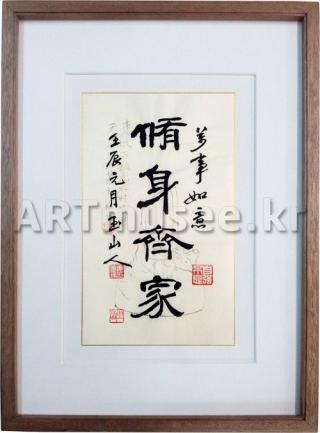 萬事如意
脩身齊家
壬辰元月玉山人
ARTmusee.kr